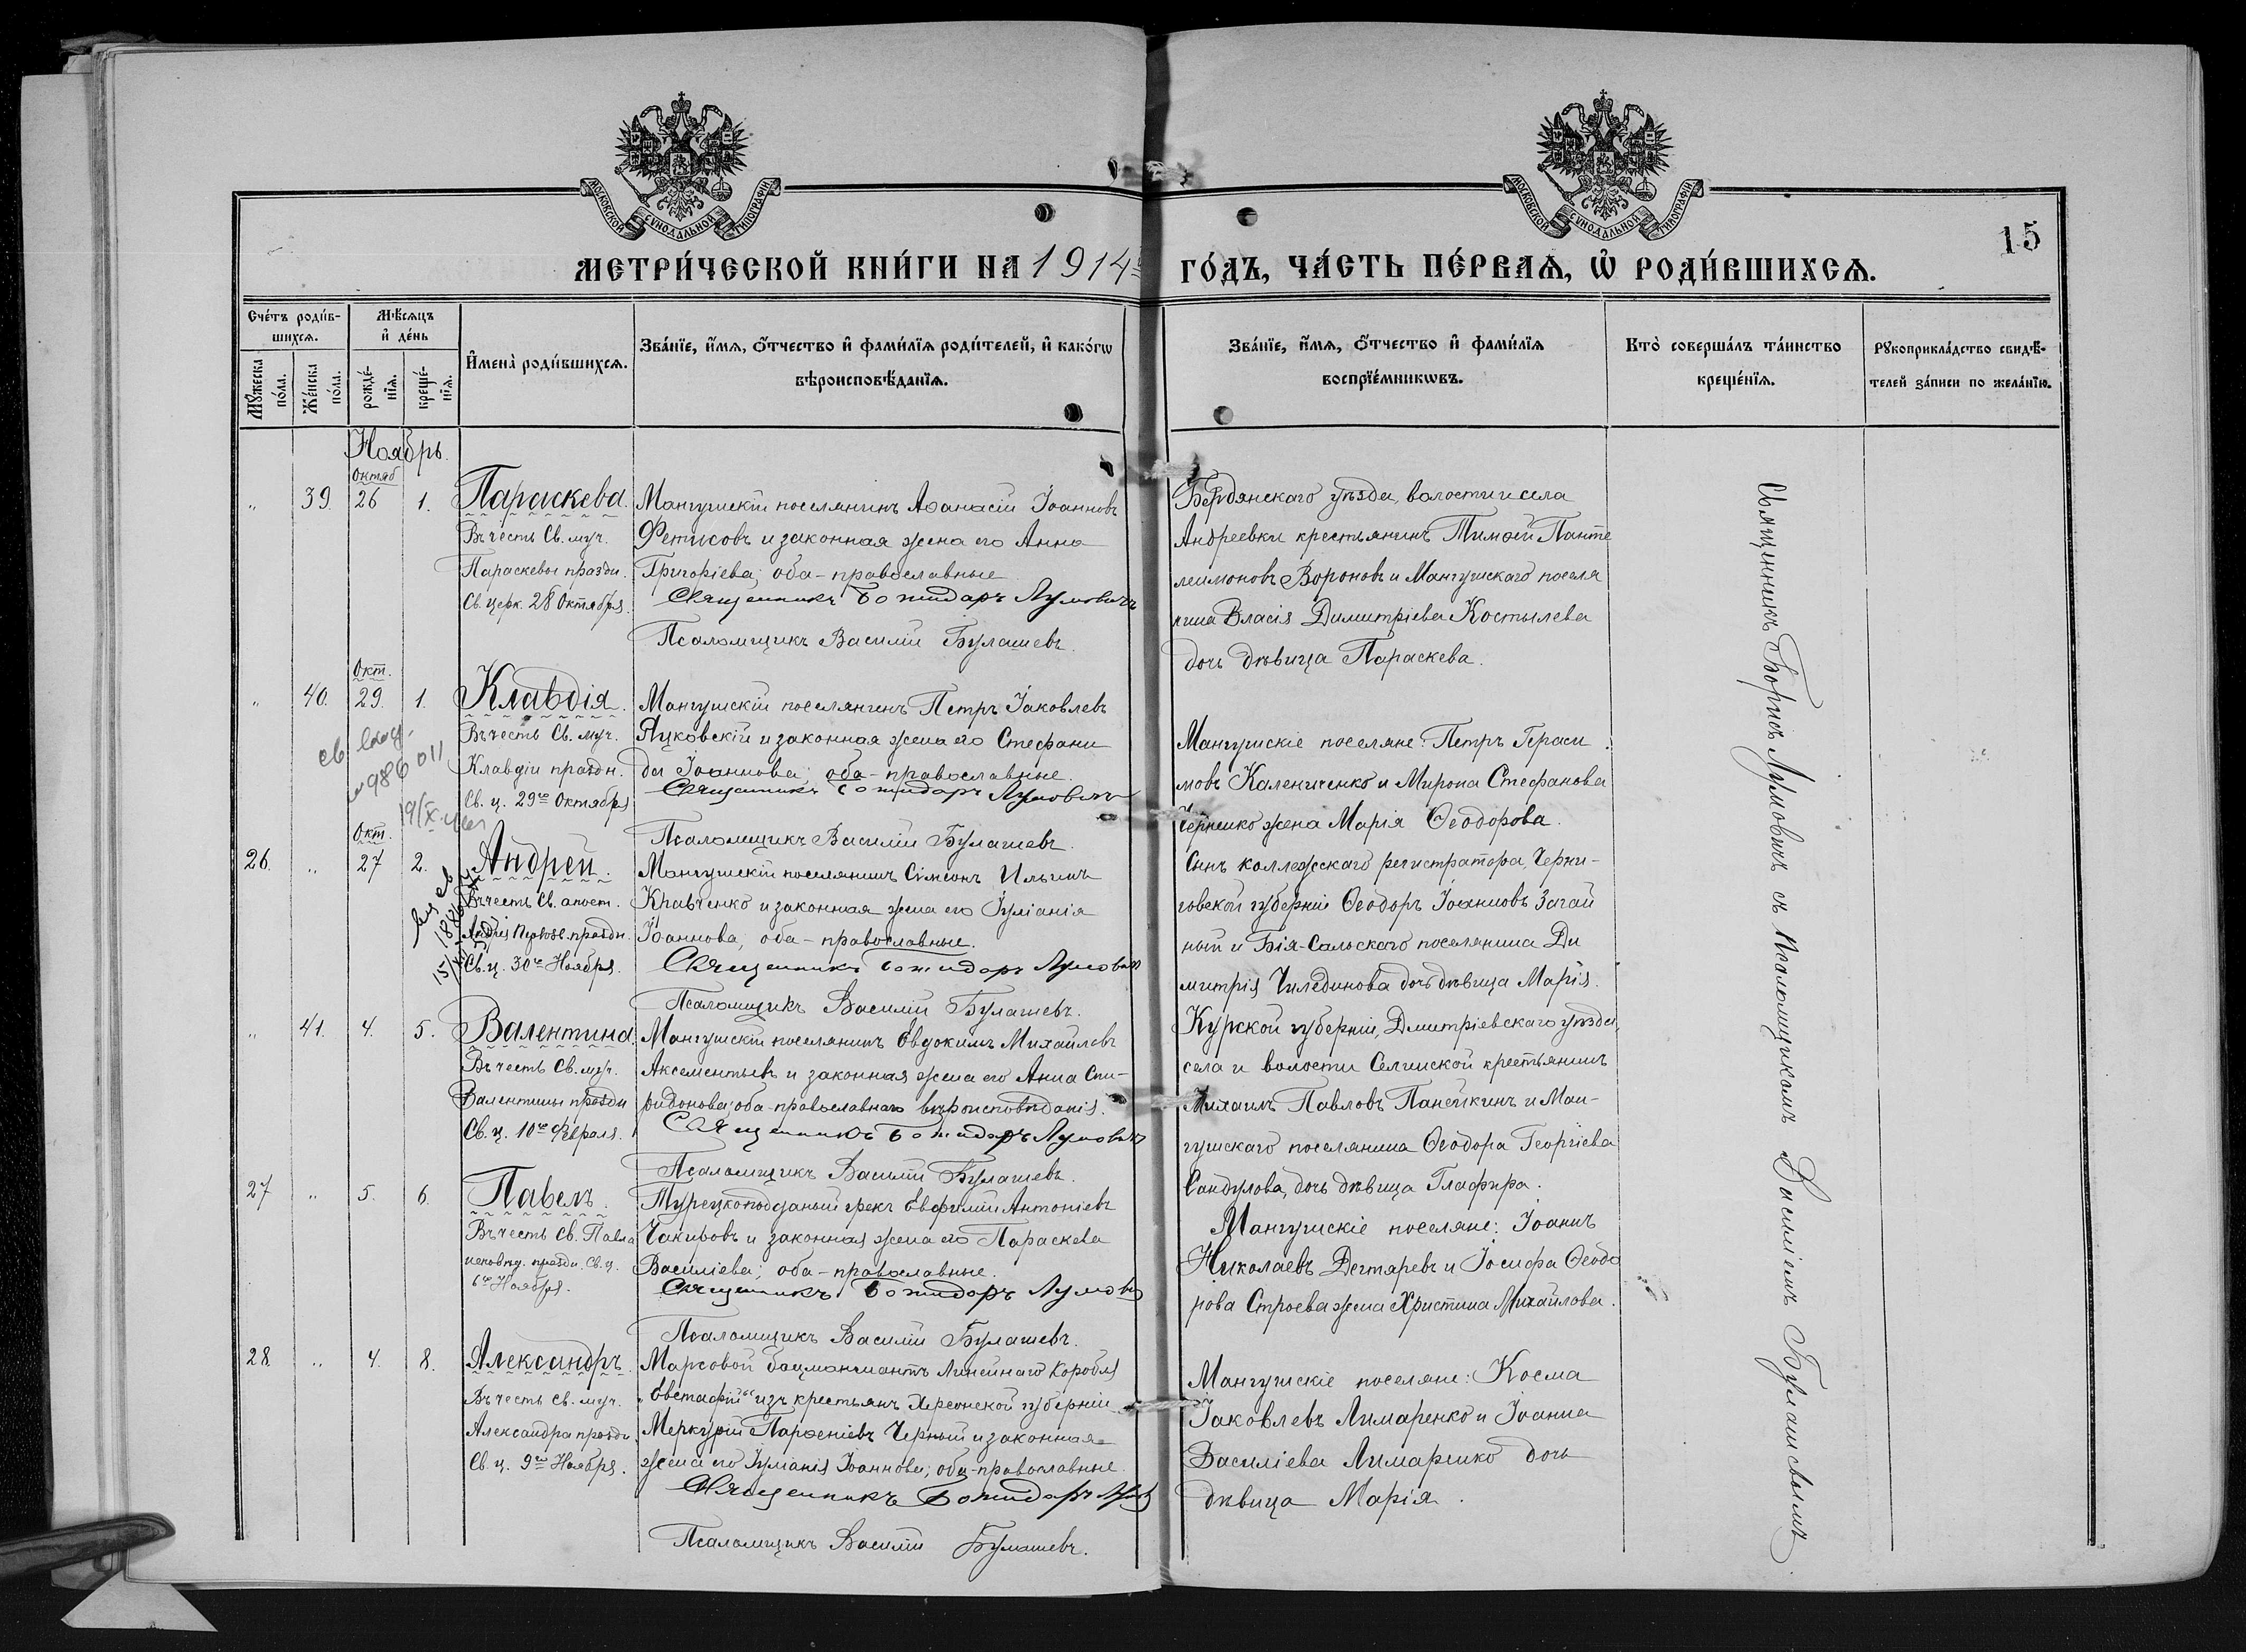 МОСКОВСКОЙ СѴНОДАЛЬНОЙ ТИПОГРАФІИ
МОСКОВСКОЙ СѴНОДАЛЬНОЙ ТИПОГРАФІИ
15
МЕТРИ́ЧЕСКОЙ КНИ́ГИ НА 1914й
ГО́ДЪ, ЧА́СТЬ ПЕ́РВАѦ, Ѽ РОДИ́ВШИХСѦ.
Сче́тъ роди́в-
шихсѧ.
Мѣ́сѧцъ
и҆ де́нь
Мꙋ́жеска по́ла.
Же́нска по́ла.
рожде́-
нїѧ.
креще́-
нїѧ.
И҆мена̀ роди́вшихсѧ.
Зва́нїе, и҆́мѧ, ѻ҆́тчество и҆ фами́лїѧ роди́телей, и҆ како́гѡ
вѣроисповѣ́данїѧ.
Зва́нїе, и҆́мѧ, ѻ҆́тчество и҆ фами́лїѧ
воспрїе́мникѡвъ.
Кто̀ соверша́лъ та́инство
креще́нїѧ.
Рꙋкоприкла́дство свидѣ́-
телей за́писи по жела́нїю.
Ноябрь.
Октяб
„ 39. 26 1. Параскева.
Въ честь Св. муч.
Параскевы праздн.
Св. церк. 28 Октября.
Мангушскій поселянинъ Аѳанасій Іоанновъ
Фетисовъ и законная жена его Анна
Григоріева; оба – православные
Священникъ Божидаръ Лумовичъ
Псаломщикъ Василій Булашевъ.
Бердянскаго уѣзда, волости и села
Андреевки крестьянинъ Тимоѳей Панте
леимоновъ Вороновъ и Мангушскаго поселя
нина Власія Димитріева Костылева
дочь дѣвица Параскева.
Окт.
„ 40. 29. 1. Клавдія.
Въ честь Св. муч.
Клавдіи праздн.
Св. ц. 29го Октября
Мангушскій поселянинъ Петръ Іаковлевъ
Яцковскій и законная жена его Стефани
да Іоаннова; оба – православные.
Священникъ Божидаръ Лумовичъ
Псаломщикъ Василій Булашевъ.
Мангушскіе поселяне: Петръ Гераси
мовъ Калениченко и Мирона Стефанова
Черненко жена Марія Ѳеодорова.
Окт.
26. „ 27 2. Андрей.
Въ честь Св. апост.
Андрія Первозв. праздн.
Св. ц. 30го Ноября.
Мангушскій поселянинъ Сімеонъ Ильинъ
Кравченко и законная жена его Іуліанія
Іоаннова; оба – православные.
Священникъ Божидаръ Лумовичъ
Псаломщикъ Василій Булашевъ.
Сынъ коллежскаго регистратора, Черни-
говской губерніи Ѳеодоръ Іоанновъ Загай
ный и Бія-Сальскаго поселянина Ди
митрія Чилединова дочь дѣвица Марія.
„ 41. 4. 5. Валентина.
Въ честь Св. муч.
Валентины праздн
Св. ц. 10го Февраля.
Мангушскій поселянинъ Евдокимъ Михайловъ
Аксементьевъ и законная жена его Анна Спи-
ридонова; оба православнаго вѣроисповѣданія.
Священникъ Божидаръ Лумовичъ
Псаломщикъ Василій Булашевъ.
Курской губерніи, Дмитріевскаго уѣзда,
села и волости Селинской крестьянинъ
Михаилъ Павловъ Панейкинъ и Ман-
гушскаго поселянина Ѳеодора Георгіева
Сандулова, дочь дѣвица Глафира.
27 „ 5. 6. Павелъ.
Въ честь Св. Павла
исповѣд. праздн. Св. ц.
6го Ноября.
Турецкоподданый грекъ Евфимій Антоніевъ
Чакировъ и законная жена его Параскева
Василіева; оба – православные.
Священникъ Божидаръ Лумов
Псаломщикъ Василій Булашевъ.
Мангушскіе поселяне: Іоаннъ
Николаевъ Дегтяревъ и Іосифа Ѳеодо
рова Строева жена Христина Михайлова.
28. „ 4. 8. Александръ.
Въ честь Св. муч.
Александра праздн.
Св. ц. 9го Ноября.
Марсовой боцманматъ Линейнаго Корабля
„Евстафій“ изъ крестьянъ Херсонской губерніи
Меркурій Парѳеніевъ Черный и законная
жена его Іуліанія Іоаннова; оба – православные.
Священникъ Божидаръ Лум
Псаломщикъ Василій Булашевъ.
Мангушскіе поселяне: Косма
Іаковлевъ Лимаренко и Іоанна
Василіева Лимаренко дочь
дѣвица Марія.
Священникъ Борисъ Лумовичъ съ Псаломщикомъ Василіемъ Булашевымъ